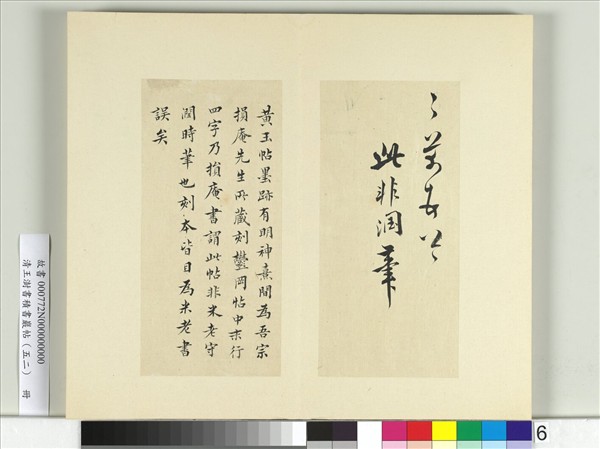 此非潤筆
黃玉帖墨跡有明神熹間為吾宗
損庵先生所藏刻鬱岡帖中末行
四字乃損庵書謂此帖非米老守
潤時筆也刻本皆目為米老書
誤矣
故書000772N000000000
清王澍書積書巖帖（五二） 冊
6